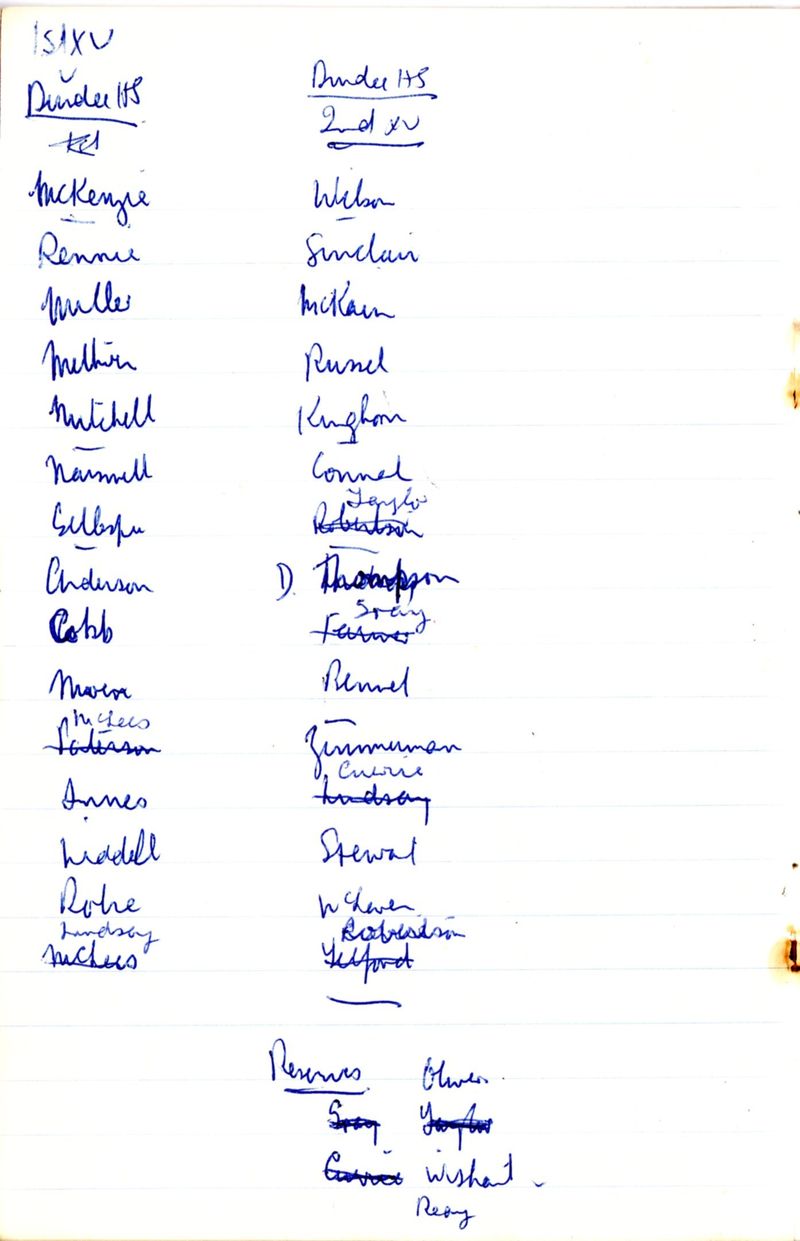 1st XV
Dundee HS
McKenzie
Rennie
Miller
Methven
Mitchell
Maxwell
Gillespie
Anderson
Cobb
McLees
Paterson
Innes
Liddell
Robe
Lindsay
McLees
Dundee HS
2nd XV
Wilson
Sinclair
McKain
Russel
Kinghorn
Connal
Taylor
Robertson
D. Thompson
Gray
Farmer
Rennel
Zimmerman
Currie
Lindsay
Stewat
McLaren
Robertson
Telford
Reserves
Oliver
Gray Taylor
Currie Wishart
Reay